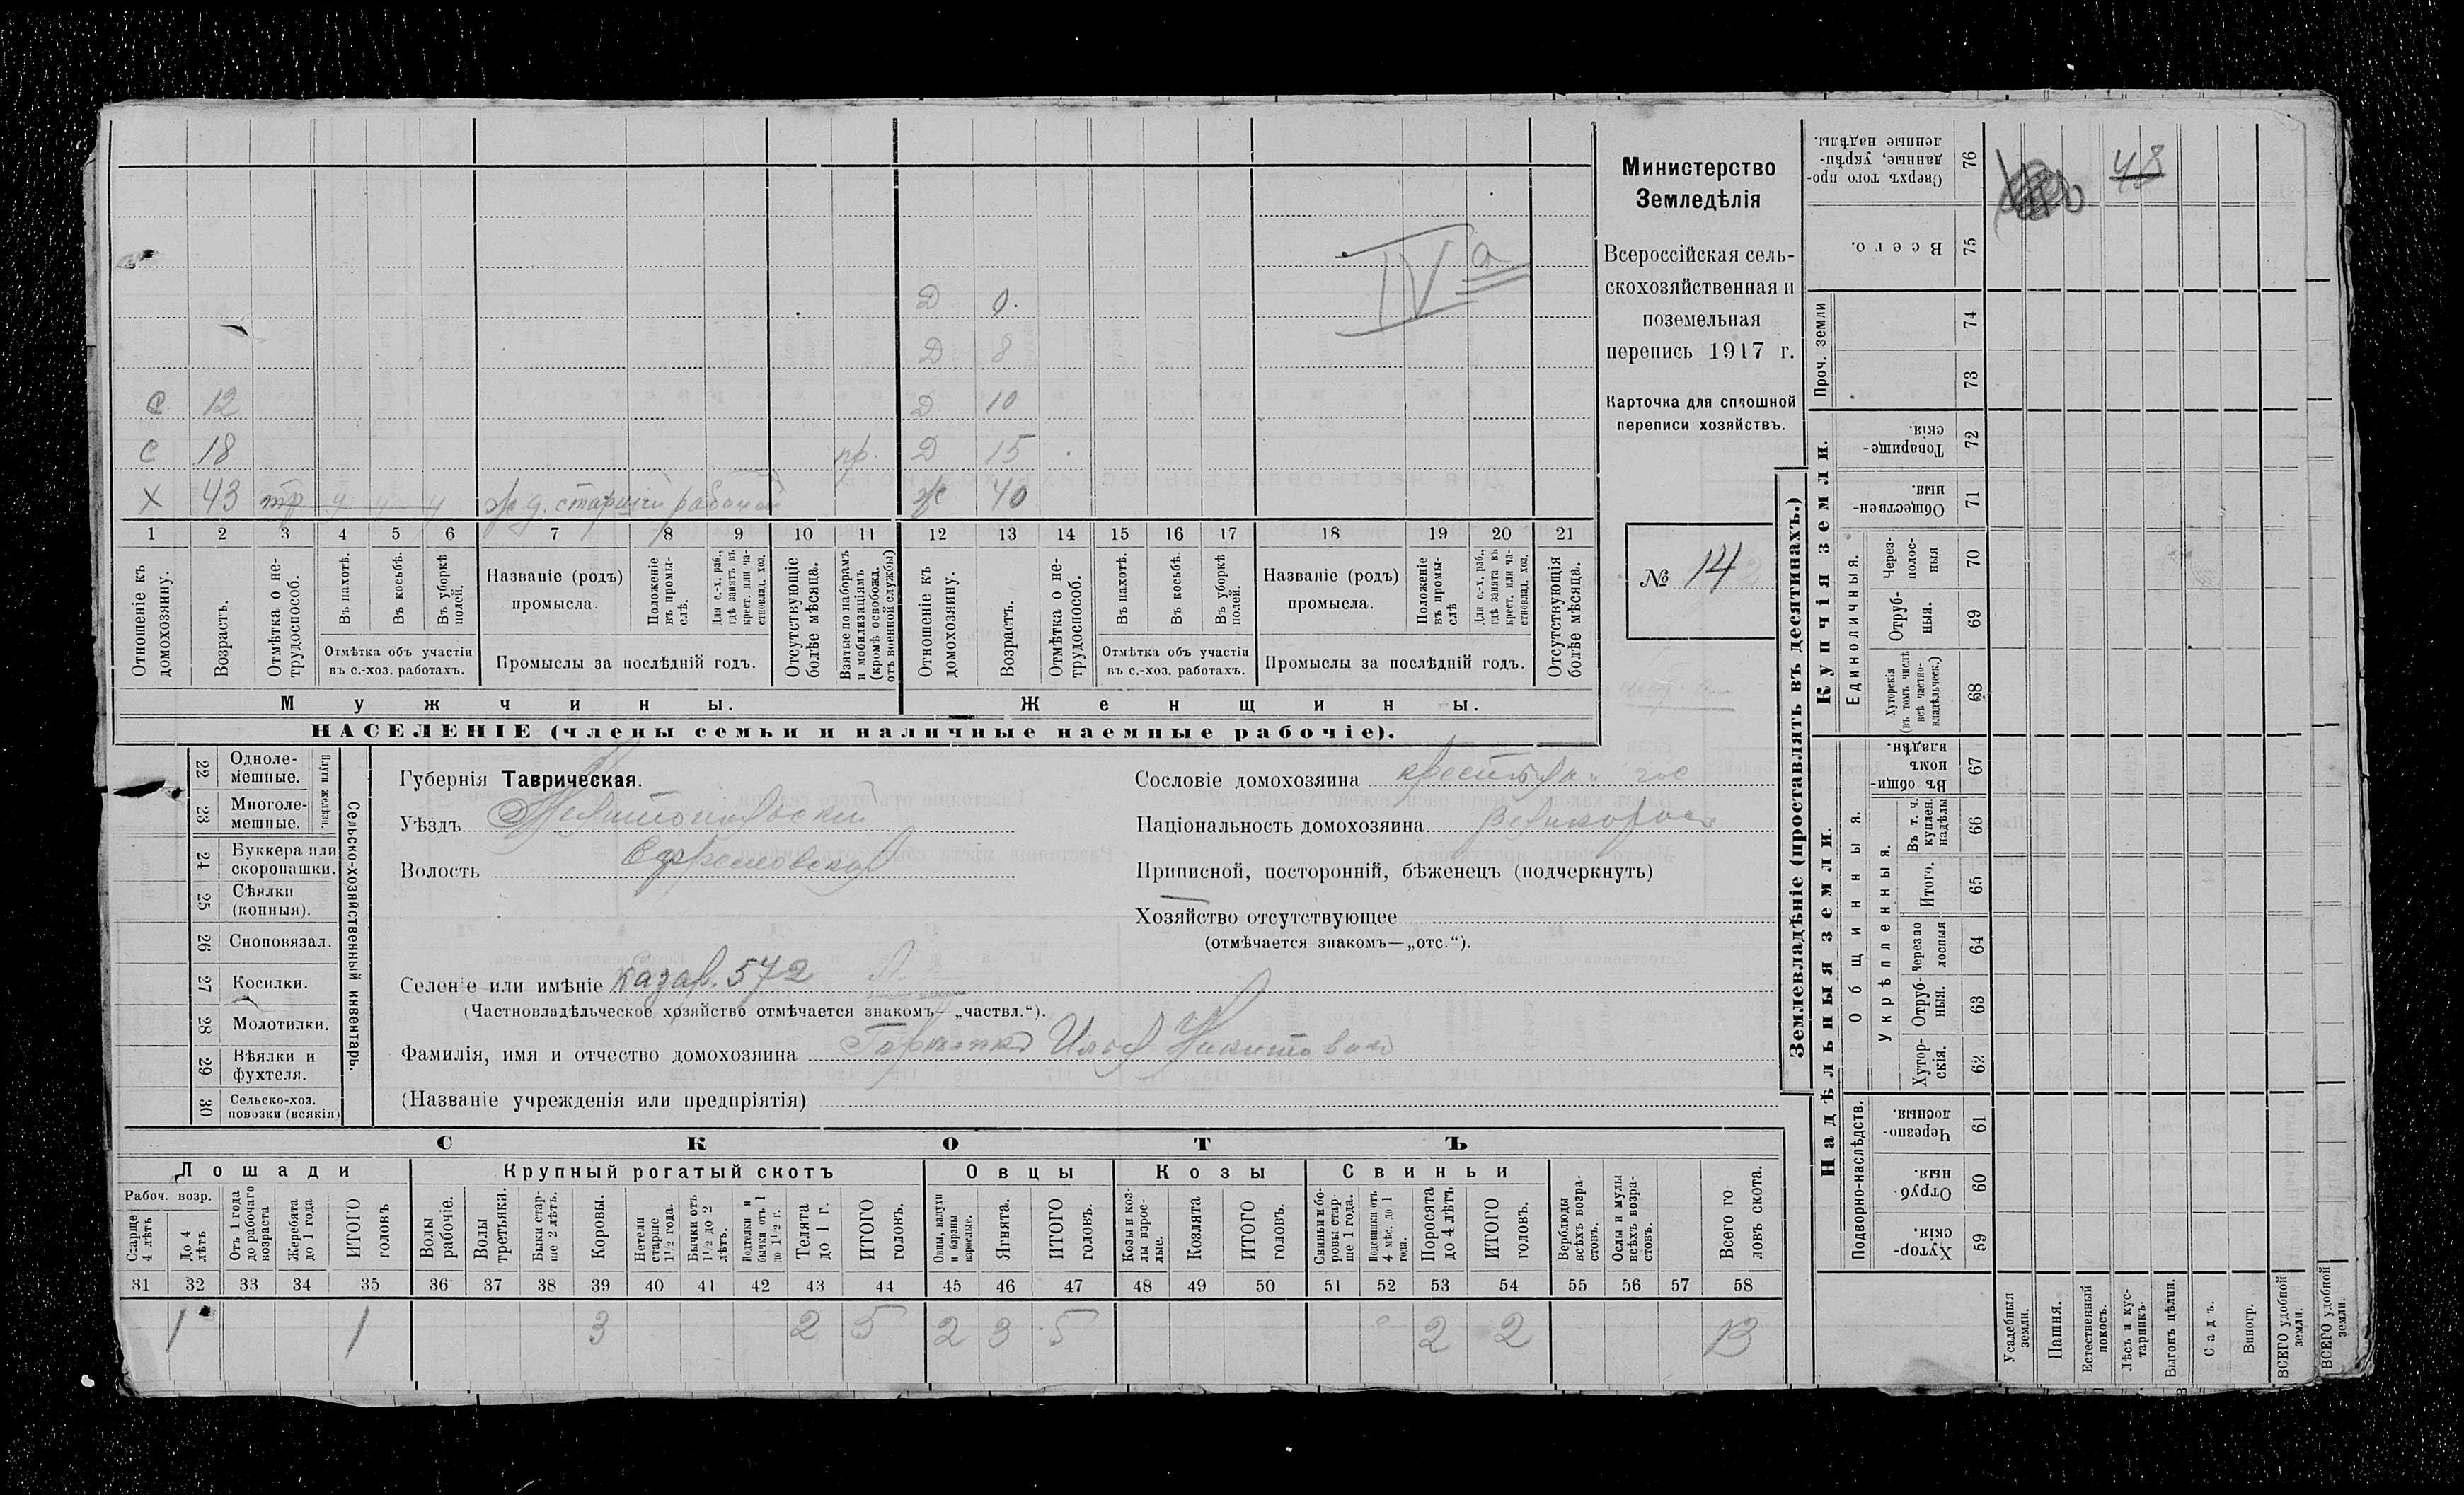 Министерство
Земледѣлія
Всероссійская сель-
скохозяйственная и
поземельная
перепись 1917 г.
Карточка для сплошной
переписи хозяйствъ.
№ 14
IV а
Д 0.
Д 8
С 12 Д 10
С 18 пр. Д 15
Х 43 тр ч ч ч ж. д. старший рабочий ж 40
1 2 3 4 5 6 7 8 9 10 11 12 13 14 15 16 17 18 19 20 21
Отношеніе къ домохозяину.
Возрастъ.
Отмѣтка о не-трудоспособ.
Въ пахотѣ.
Въ косьбѣ.
Въ уборкѣ полей.
Отмѣтка объ участіи
въ с.-хоз. работахъ.
Названіе (родъ)
промысла.
Положеніе въ промы-слѣ.
Для с.-х. раб., гдѣ занятъ въ крест. или ча-стновлад. хоз.
Промыслы за послѣдній годъ.
Отсутствующіе болѣе мѣсяца.
Взятые по наборамъ и мобилизаціямъ (кромѣ освобожд. отъ военной службы)
Отношеніе къ домохозяину.
Возрастъ.
Отмѣтка о не-трудоспособ.
Въ пахотѣ.
Въ косьбѣ.
Въ уборкѣ полей.
Отмѣтка объ участіи
въ с.-хоз. работахъ.
Названіе (родъ)
промысла.
Положеніе въ промы-слѣ
Для с.-х. раб., гдѣ занята въ крест. или ча-стновлад. хоз.
Промыслы за послѣдній годъ.
Отсутствующія болѣе мѣсяца.
Мужчины. Женщины.
НАСЕЛЕНІЕ (члены семьи и наличные наемные рабочіе).
22 Одноле-мешные.
23 Многоле-мешные.
Плуги желѣзн.
24 Буккера или скоропашки.
25 Сѣялки (конныя).
26 Сноповязал.
27 Косилки.
28 Молотилки.
29 Вѣялки и фухтеля.
30 Сельско-хоз. повозки (всякія)
Сельско-хозяйственный инвентарь.
Губернія Таврическая.
Уѣздъ Мелитопольский
Волость Ефремовская
Селеніе или имѣніе казар. 572
(Частновладѣльческое хозяйство отмѣчается знакомъ— „частвл.“).
Фамилія, имя и отчество домохозяина Илья Никитович
(Названіе учрежденія или предпріятія)
Сословіе домохозяина
Національность домохозяина Великоросс
Приписной, посторонній, бѣженецъ (подчеркнуть)
Хозяйство отсутствующее
(отмѣчается знакомъ—„отс.“).
СКОТЪ
Лошади Крупный рогатый скотъ Овцы Козы Свиньи
Рабоч. возр.
Старше 4 лѣтъ
До 4 лѣтъ
Отъ 1 года до рабочаго возраста
Жеребята до 1 года
ИТОГО головъ
Волы рабочіе.
Волы третьяки.
Быки стар-ше 2 лѣтъ.
Коровы.
Нетели старше 1½ года.
Бычки отъ 1½ до 2 лѣтъ.
Подтелки и бычки отъ 1 до 1½ г.
Телята до 1 г.
ИТОГО головъ.
Овцы, валухи и бараны взрослые.
Ягнята.
ИТОГО головъ.
Козы и коз-лы взрос-лые.
Козлята
ИТОГО головъ.
Свиньи и бо-ровы стар-ше 1 года.
Подсвинки отъ 4 мѣс. до 1 года.
Поросята до 4 лѣтъ
ИТОГО головъ.
Верблюды всѣхъ возра-стовъ.
Ослы и мулы всѣхъ возра-стовъ.
Всего го ловъ скота.
31 32 33 34 35 36 37 38 39 40 41 42 43 44 45 46 47 48 49 50 51 52 53 54 55 56 57 58
1 1 3 2 5 2 3 5 2 2 13
Землевладѣніе (проставлять въ десятинахъ.)
Сверхъ того про-данные, укрѣп-ленные надѣлы. 76
48
Всего. 75
Проч. земли 74
73
Купчія земли.
Товарище-скія. 72
Обществен-ныя. 71
Единоличныя.
Через-полос-ныя 70
Отруб-ныя. 69
Хуторскія (въ томъ числѣ всѣ частно-владѣльческ.) 68
Надѣльныя земли.
Общинныя.
Въ общин-номъ владѣн. 67
Укрѣпленныя.
Въ т. ч. куплен. надѣлы 66
Итого. 65
Черезпо лосныя 64
Отруб-ныя. 63
Хутор-скія. 62
Подворно-наслѣдств.
Черезпо-лосныя. 61
Отруб-ныя. 60
Хутор-скія. 59
Усадебныя земли.
Пашня.
Естественный покосъ.
Лѣсъ и кус-тарникъ.
Выгонъ цѣлин.
Садъ.
Виногр.
ВСЕГО удобной земли.
ВСЕГО удобной земли.